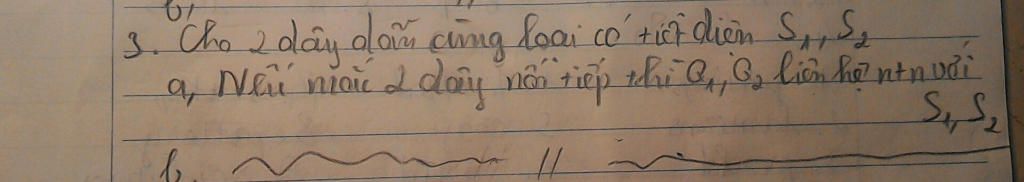 3. Cho 2 dây dẫn cùng loại có tiết diện S₁, S₂
a, Nếu mắc 2 dây nối tiếp thì Q₁, Q₂ liên hệ ntn với
S₁, S₂
b, ~ // ~